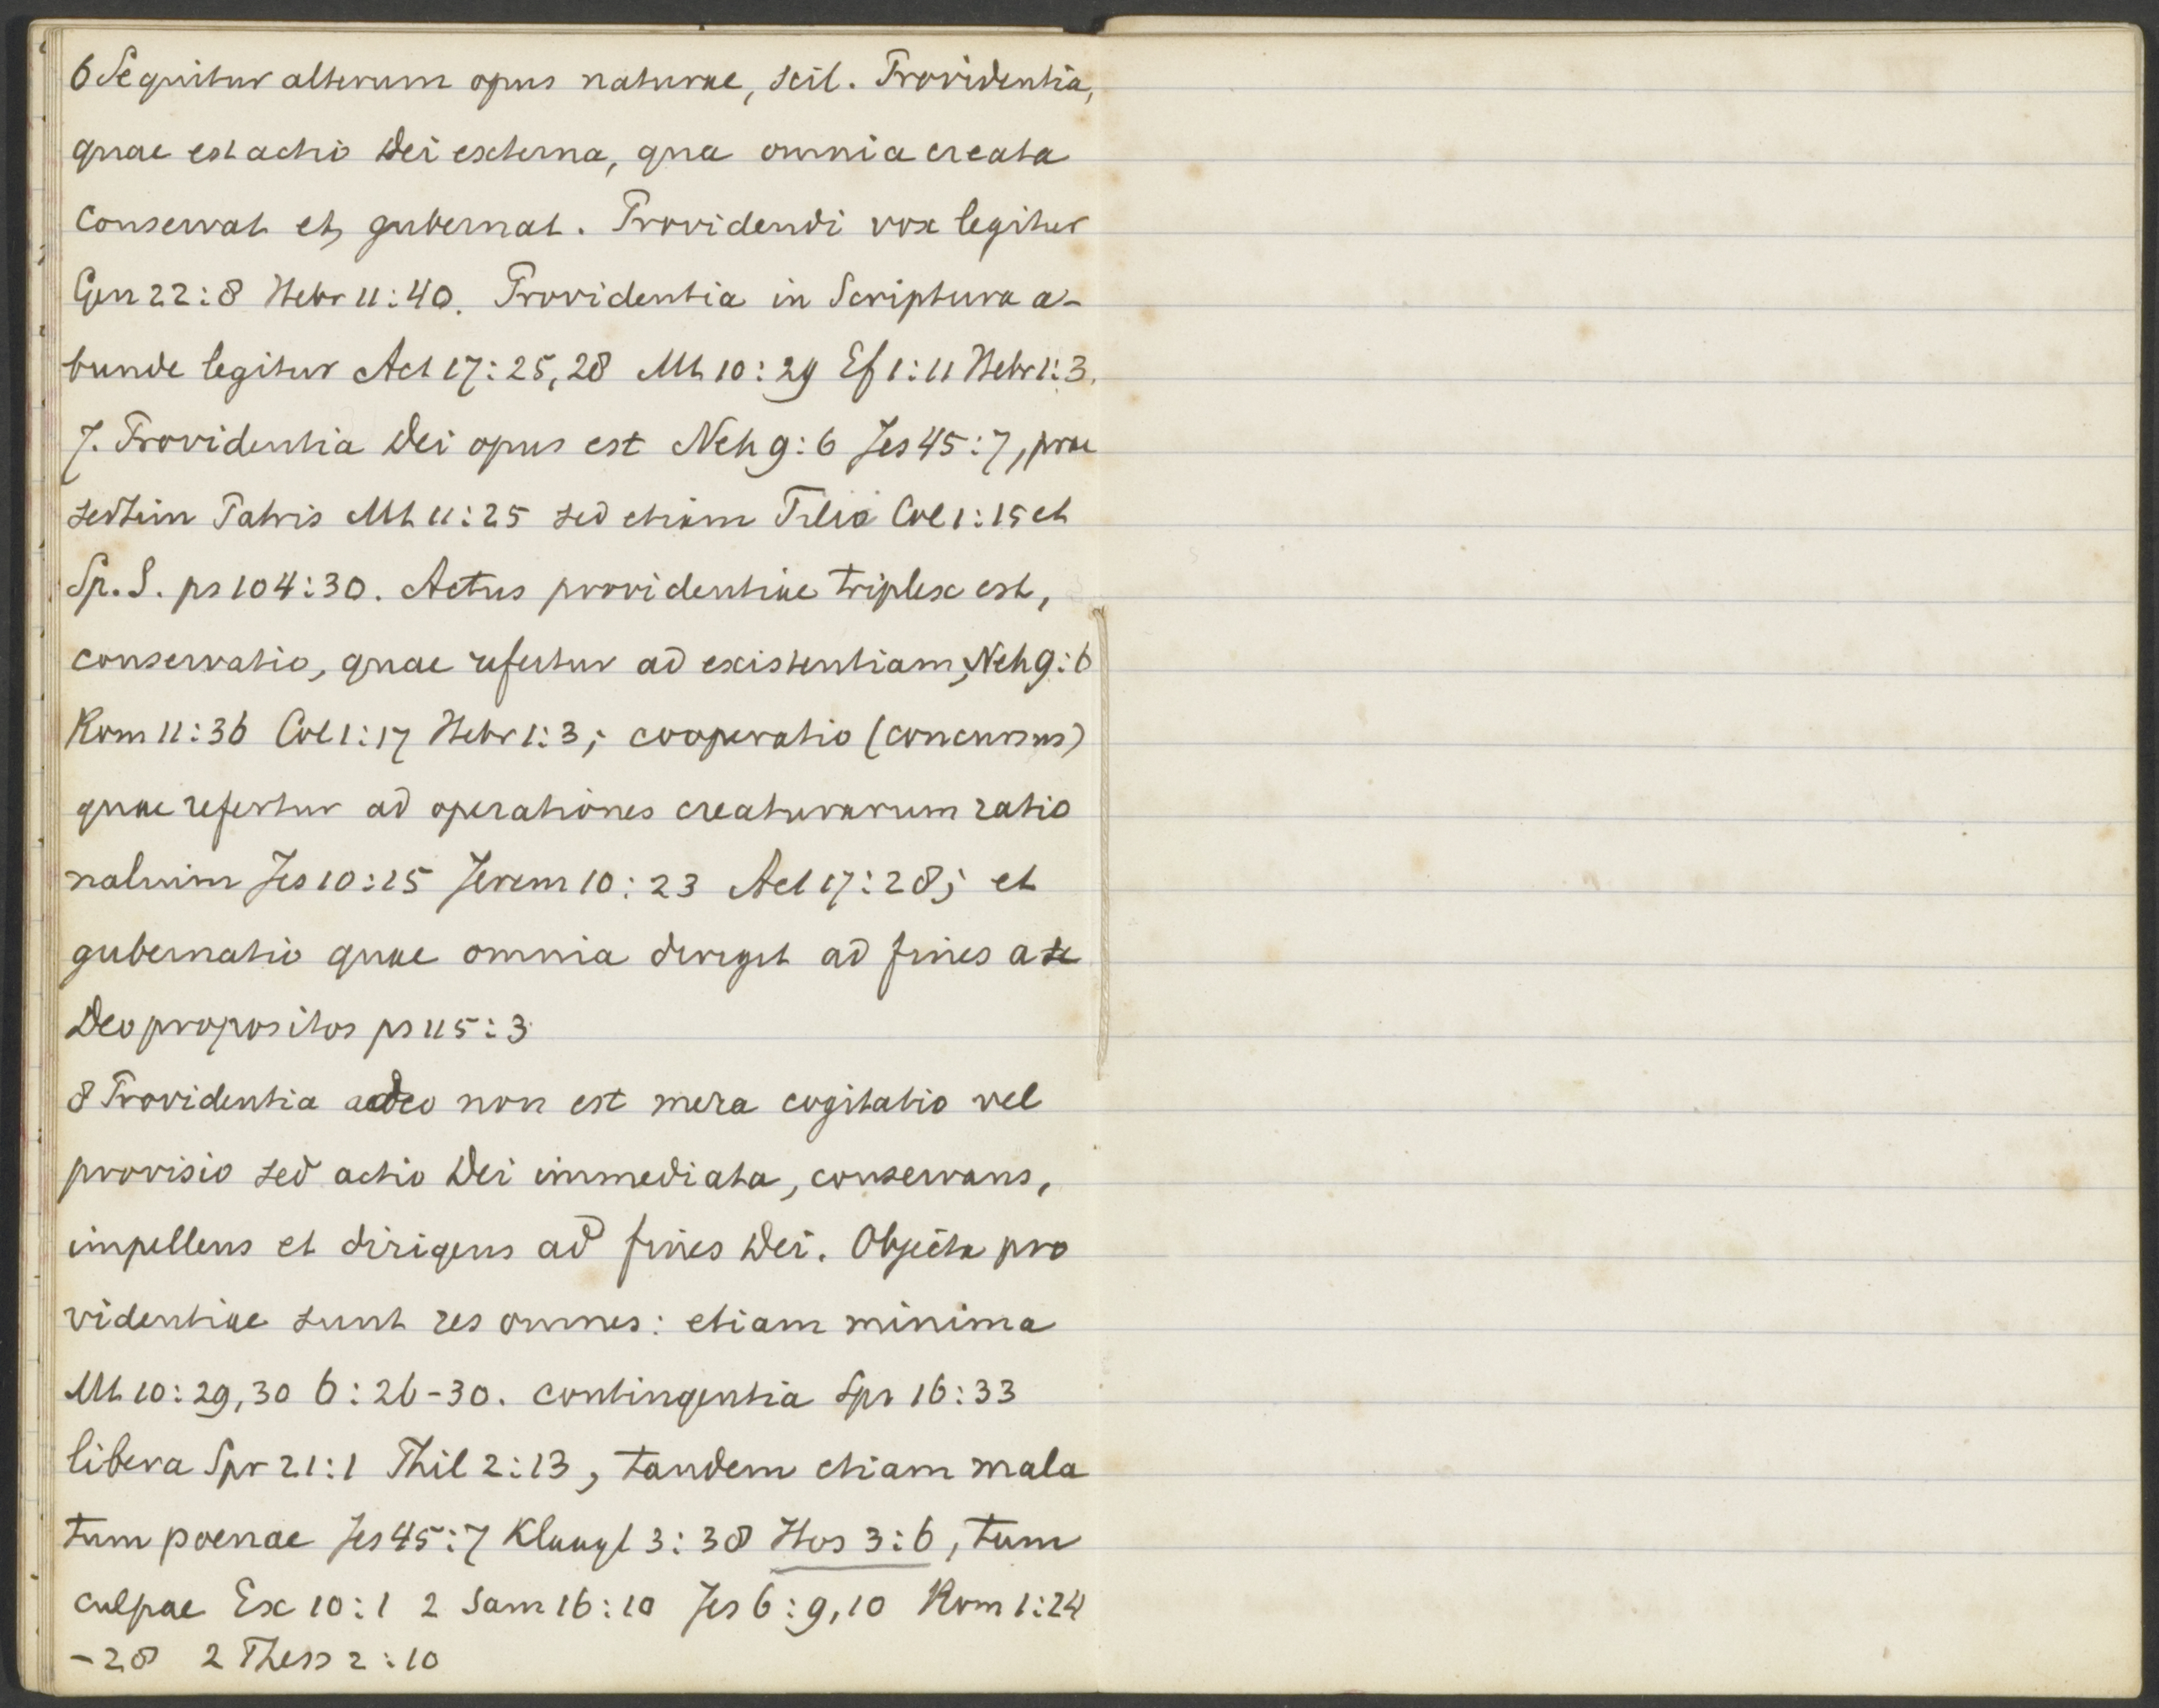 6 Sequitur alterum opus naturae, scil. Providentia,
quae est actio Dei externa, qua omnia creata
conservat et gubernat. Providendi vox legitur
Gen 22:8 Hebr 11:40. Providentia in Scriptura a-
bunde legitur Act 17:25,28 Mt 10:29 Ef 1:11 Hebr 1:3.
7. Providentia Dei opus est Neh 9:6 Jes 45:7, prae
sertim Patris Mt 11:25 sed etiam Filio Col 1:15 et
Sp. S. ps 104:30. Actus providentiae triplex est,
conservatio, quae refertur ad existentiam, Neh 9:6
Rom 11:36 Col 1:17 Hebr 1:3; cooperatio (concursus)
quae refertur ad operationes creaturarum ratio
nalium Jes 10:15 Jerem 10:23 Act 17:28; et
gubernatio quae omnia dirigit ad fines a
Deo propositos ps 115:3
8 Providentia adeo non est mera cogitatio vel
provisio sed actio Dei immediata, conservans,
impellens et dirigens ad fines Dei. Objecta pro
videntiae sunt res omnes: etiam minima
Mt 10:29,30 6:26-30. contingentia Spr 16:33
libera Spr 21:1 Phil 2:13, tandem etiam mala
tum poenae Jes 45:7 Klaagl 3:38 Hos 3:6, tum
culpae Ex 10:1 2 Sam 16:10 Jes 6:9,10 Rom 1:24
-28 2 Thess 2:10